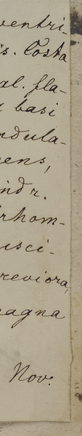 ventri
is. Costa
al. fla-
basi
ndula-
ens,
indr.
rhom-
usci-
reviora,
magna
Nov.